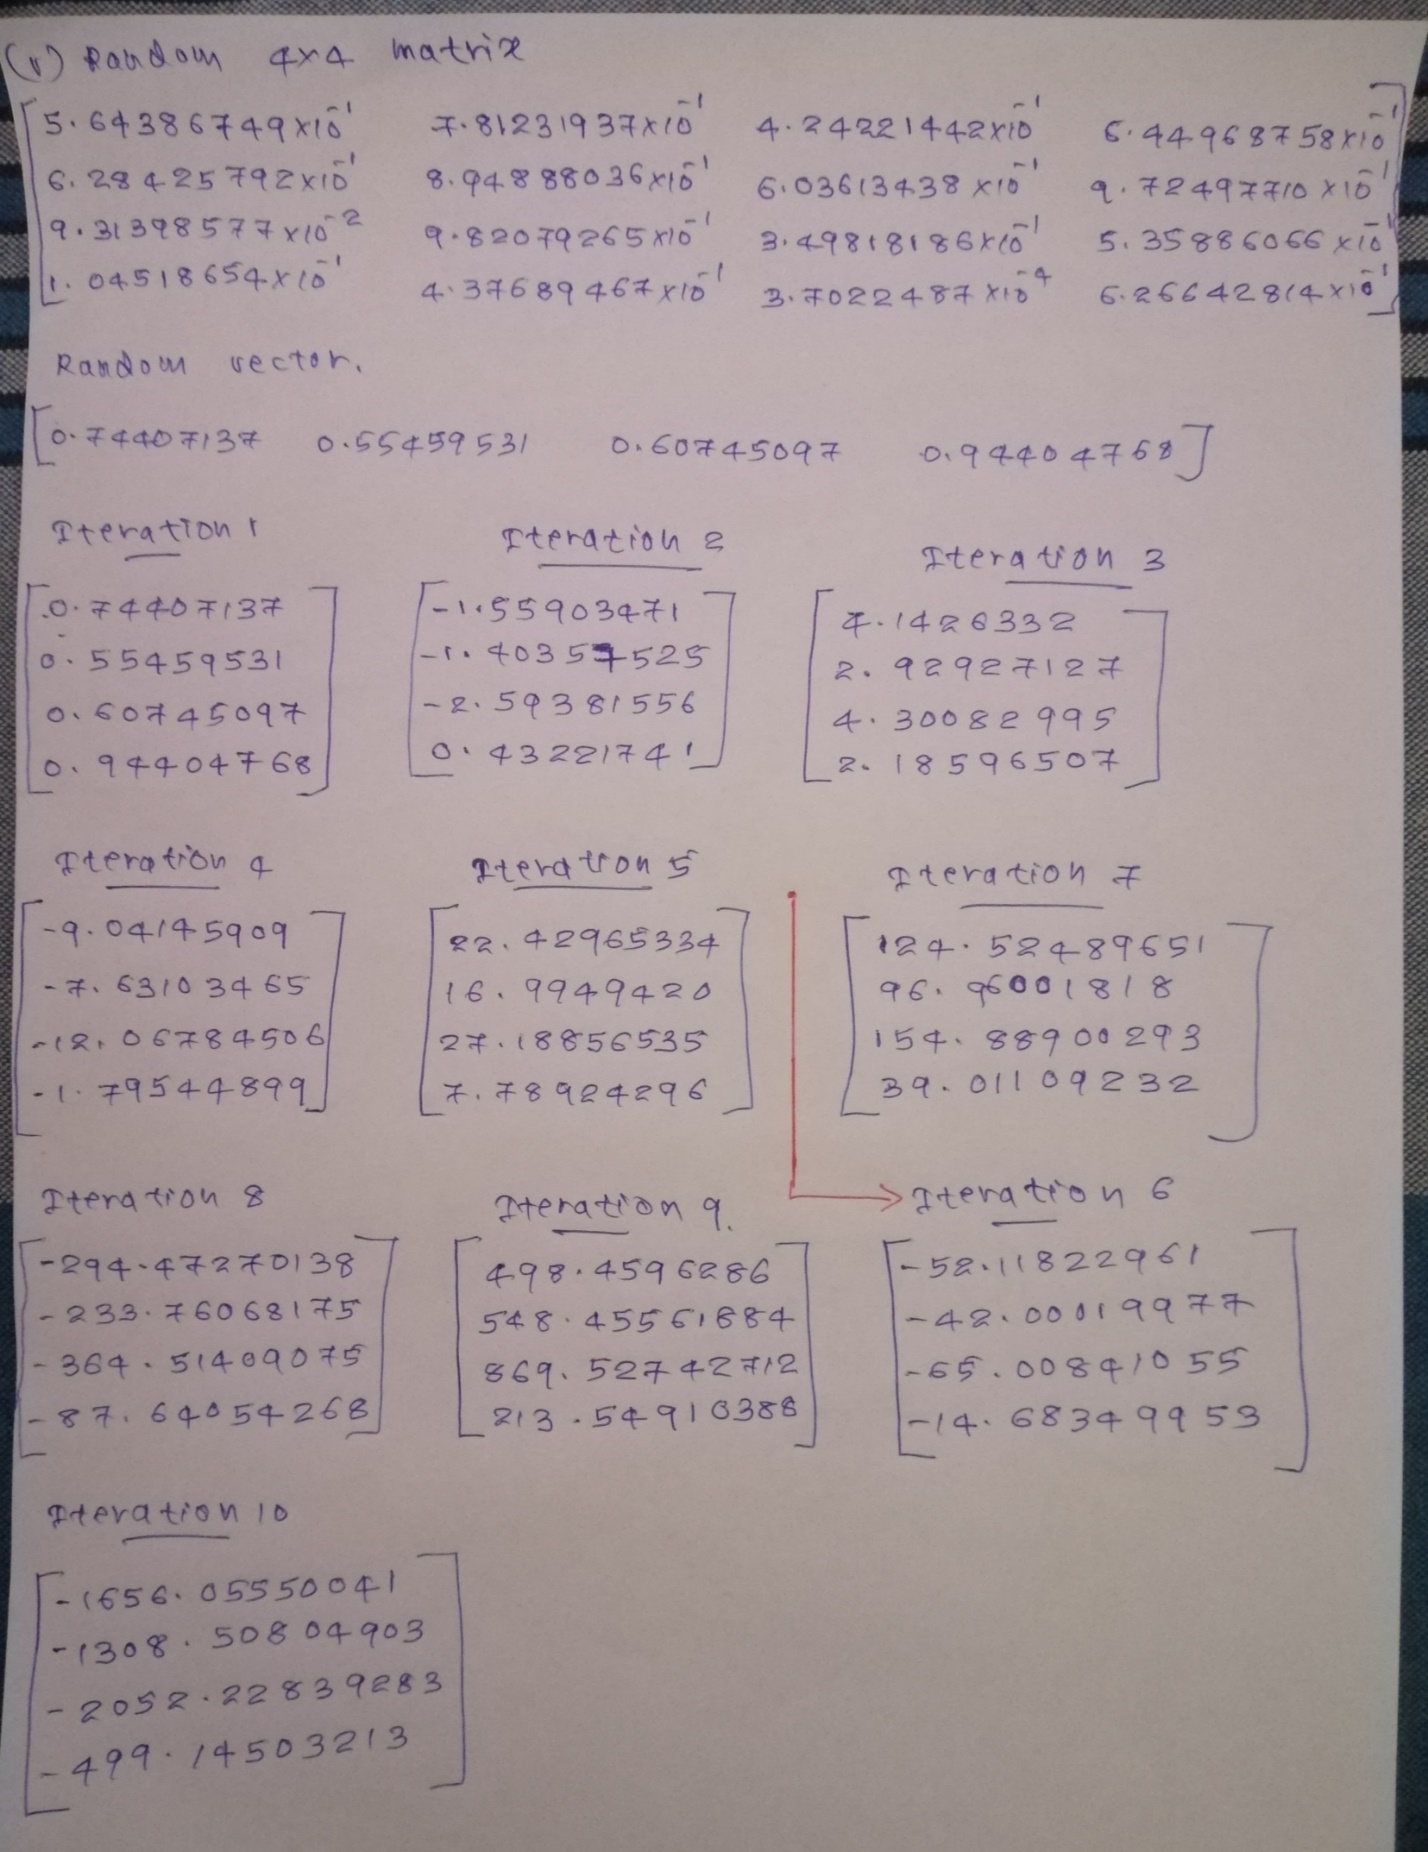 (v) Random 4x4 matrix
5.64386749x10⁻¹ 7.81231937x10⁻¹ 4.24221442x10⁻¹ 6.44968758x10⁻¹
6.28425792x10⁻¹ 8.94888036x10⁻¹ 6.03613438x10⁻¹ 9.72497710x10⁻¹
9.31398577x10⁻² 9.82079265x10⁻¹ 3.49818186x10⁻¹ 5.35886066x10⁻¹
1.04518654x10⁻¹ 4.37689467x10⁻¹ 3.7022487x10⁻⁴ 6.26642814x10⁻¹
Random vector.
[0.74407137 0.55459531 0.60745097 0.94404768]
Iteration 1
0.74407137
0.55459531
0.60745097
0.94404768
Iteration 2
-1.55903471
-1.40357525
-2.59381556
0.43221741
Iteration 3
4.1426332
2.92927127
4.30082995
2.18596507
Iteration 4
-9.04145909
-7.63103465
-12.06784506
-1.79544899
Iteration 5
22.42965334
16.9949420
27.18856535
7.78924296
Iteration 7
124.52489651
96.96001818
154.88900293
39.01109232
Iteration 8
-294.47270138
-233.76068175
-364.51409075
-87.64054268
Iteration 9.
498.4596286
548.45561884
869.52742712
213.54910388
Iteration 6
-52.11822961
-42.00019977
-65.00841055
-14.68349953
Iteration 10
-1656.05550041
-1308.50804903
-2052.22839283
-499.14503213